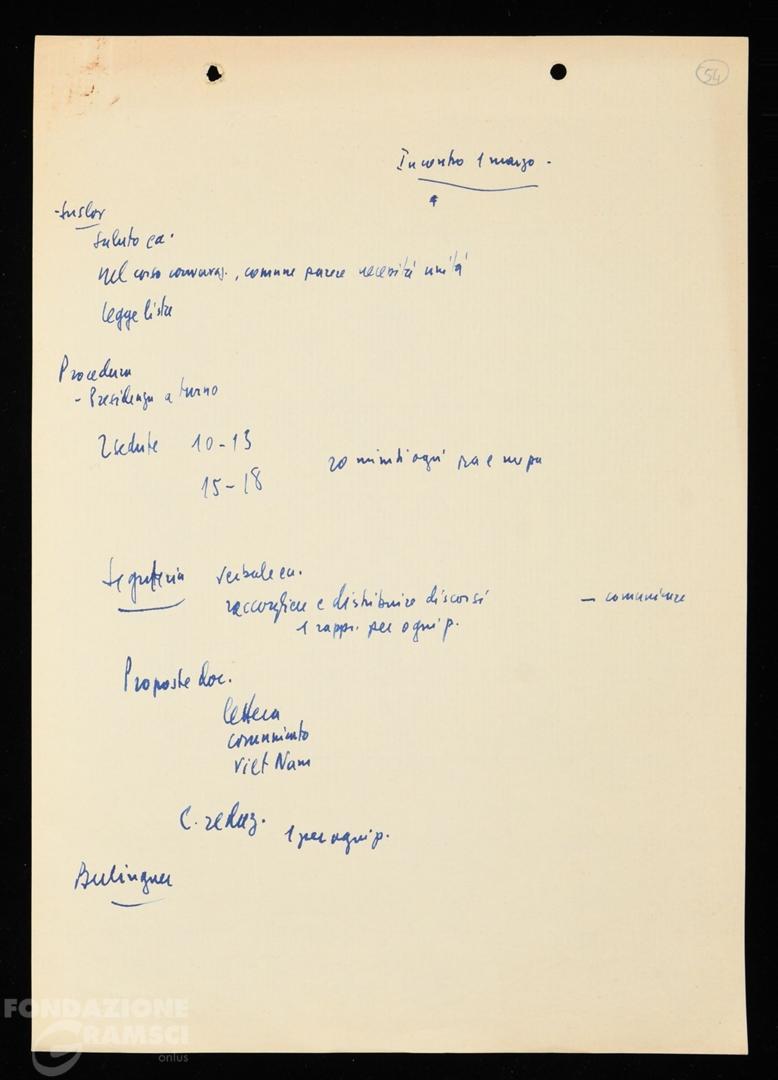 54
Incontro 1 marzo.
- Suslov
Saluto ca.
nel corso conversaz., comune parere necessità unità
legge lista
Procedura
- Presidenza a turno
2 sedute 10-13
15-18
20 minuti ogni
Segreteria verbale ca.
raccogliere e distribuire discorsi
1 rappr. per ogni p.
Proposte doc.
lettera
comunicato
Viet Nam
C. redaz. 1 per ogni p.
Berlinguer
FONDAZIONE
GRAMSCI
onlus